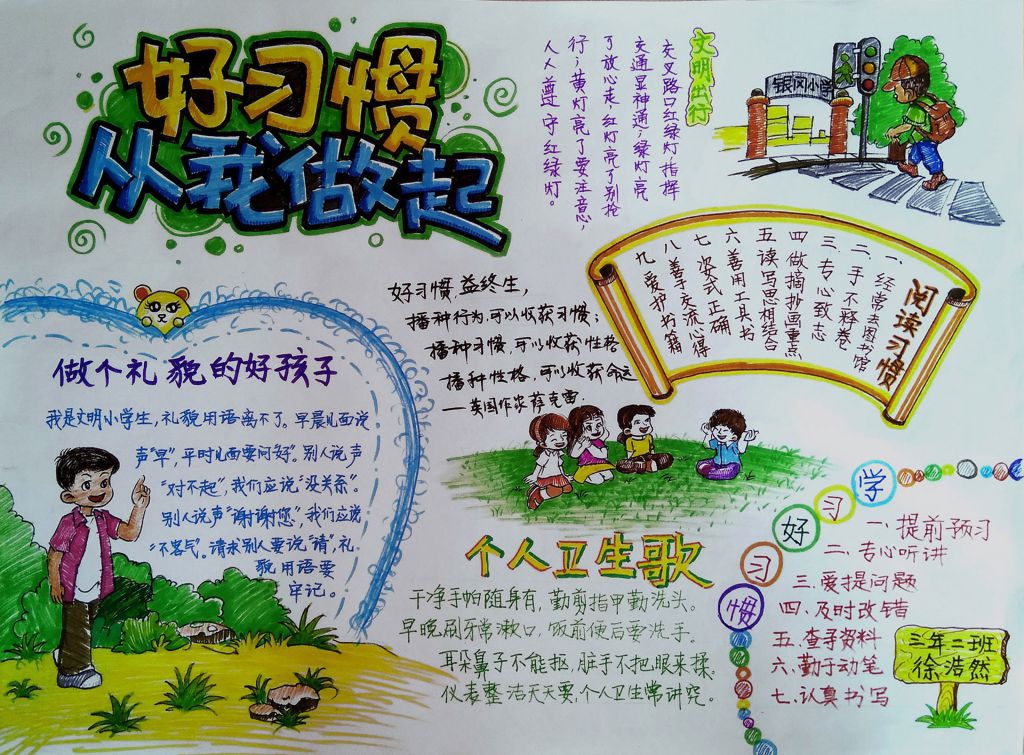 好习惯
从我做起
文明出行
交叉路口红绿灯指挥
交通显神通；绿灯亮
了放心走，红灯亮了别抢
行；黄灯亮了要注意，
人人遵守红绿灯。
银冈小学
阅读习惯
一、经常去图书馆
二、手不释卷
三、专心致志
四做摘抄画重点
五读写思相结合
六善用工具书
七姿式正确
八善于交流心得
九爱护书籍
好习惯，益终生，
播种行为，可以收获习惯；
播种习惯，可以收获性格
播种性格，可以收获命运
——英国作家萨克雷
做个礼貌的好孩子
我是文明小学生，礼貌用语离不了。早晨见面说
声“早”，平时见面要问“好”。别人说声
“对不起”，我们应说“没关系”。
别人说声“谢谢您”，我们应说
“不客气”。请求别人要说“请”，礼
貌用语要
牢记。
个人卫生歌
干净手帕随身有，勤剪指甲勤洗头。
早晚刷牙常漱口，饭前便后要洗手。
耳朵鼻子不能抠，脏手不把眼来揉。
仪表整洁天天要，个人卫生常讲究。
学习好习惯
一、提前预习
二、专心听讲
三、爱提问题
四、及时改错
五、查子资料
六、勤于动笔
七、认真书写
三年二班
徐浩然